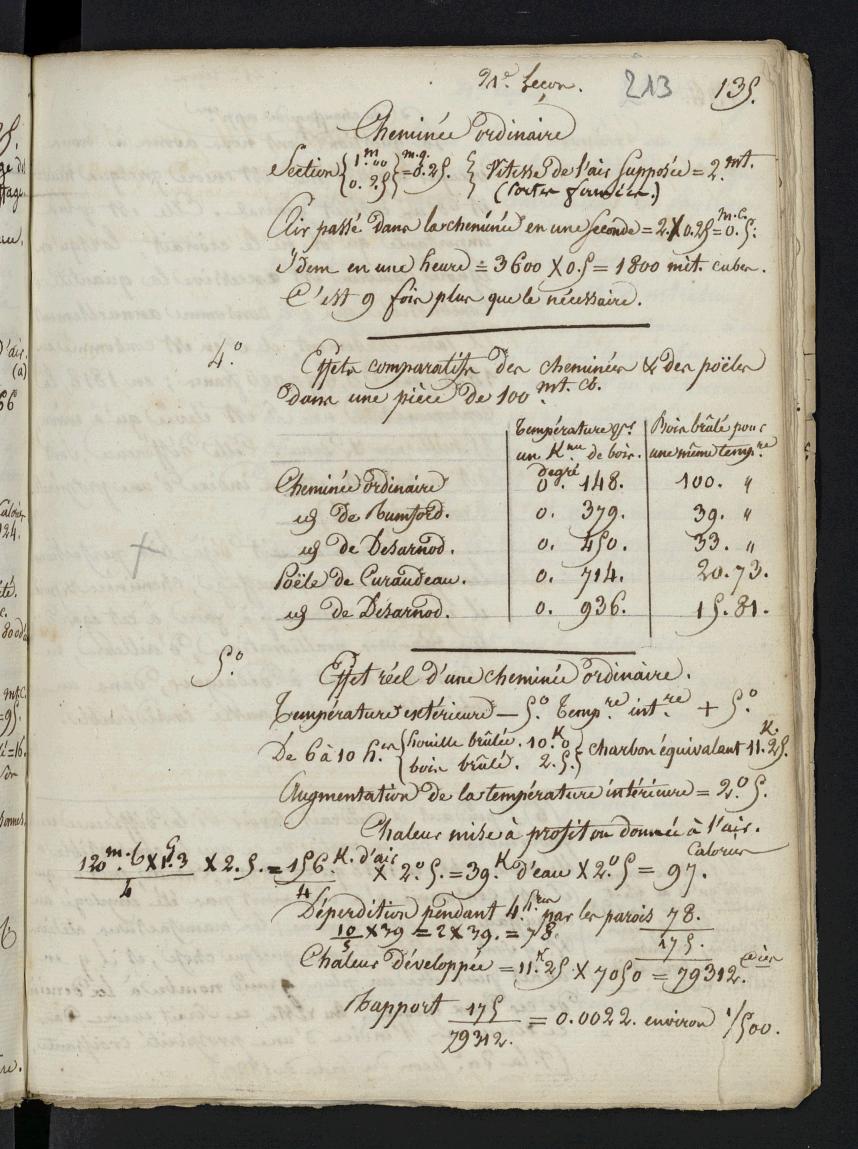 21e. Leçon. 213 135.
Cheminée ordinaire
Section { 1.m00 / 0. 25 } m.q. = 0.25. { Vitesse de l'air supposée = 2.mt.
(portes fermées.)
Air passé dans la cheminée en une seconde = 2. X 0.25 = 0.m.c. 5.
idem en une heure = 3600 X 0.5 = 1800 mèt. cubes.
C'est 9 fois plus que le nécessaire.
4.o Effets comparatifs des cheminées & des poëles
dans une pièce de 100 mt. cb.
Température pr. Bois brûlé pour
un Knu. de bois. une même tempre.
degré
Cheminée ordinaire 0. 148. 100. "
id de Rumford. 0. 379. 39. "
id de Desarnod. 0. 450. 33. "
Poële de Curaudeau. 0. 714. 20.73.
id de Désarnod. 0. 936. 15.81.
5.o Effet réel d'une cheminée ordinaire.
Température extérieure – 5.o Tempre. intre. + 5.o
De 6 à 10 hes. { houille brûlée. 10.K 0 / bois brûlé. 2. 5. } charbon équivalant 11.K. 25.
Augmentation de la température intérieure = 2.o 5.
Chaleur mise à profit ou donnée à l'air.
120m.c X 1g.3 / 4 X 2.5. = 156.K. d'air / 4 X 2.o 5. = 39.K d'eau X 2.o 5 = 97. Calories
Déperdition pendant 4.hres par les parois 78.
10/5 X 39 = 2 X 39. = 78. 175.
Chaleur développée = 11.K 25 X 7050 = 79312.
Rapport 175 / 79312. = 0.0022. environ 1/500.